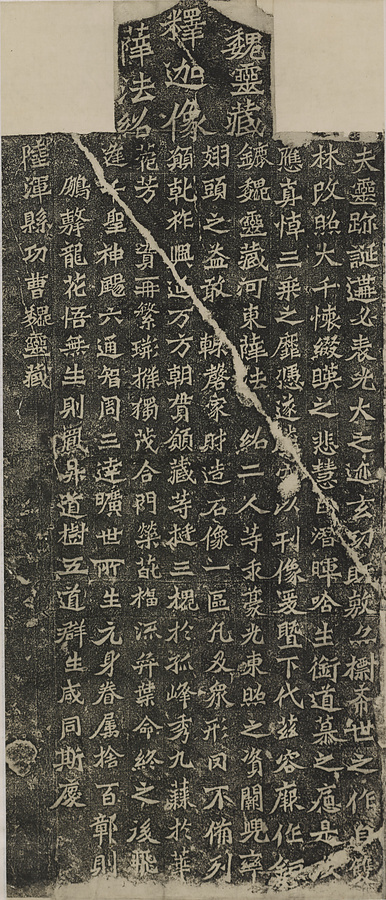 魏靈藏
釋迦像
薛法紹
夫靈跡誕遘必表光大之迹玄功既敷亦標希世之作自
林改照大千懷綴暎之悲慧日潛暉哈生銜道慕之是以
應真悼三乘之靡憑遂騰空以刊像爰暨下代茲容厥作鉅
鏕魏靈藏河東薛法紹二人等求豪光東照之資闕兜率
翅頭之益敢輒罄家財造石像一區凡及眾形罔不備列
願乾祚興延万方朝貫願藏等挺三槐於孤峰秀九蕀於華
菀芳實再繁荊條獨茂合門榮葩福流弈葉命終之後飛
逢千聖神颺六通智周三達曠世所生元身眷屬捨百鄣則
鵬擊龍花悟無生則鳳昇道樹五道群生咸同斯慶
陸渾縣功曹魏靈藏